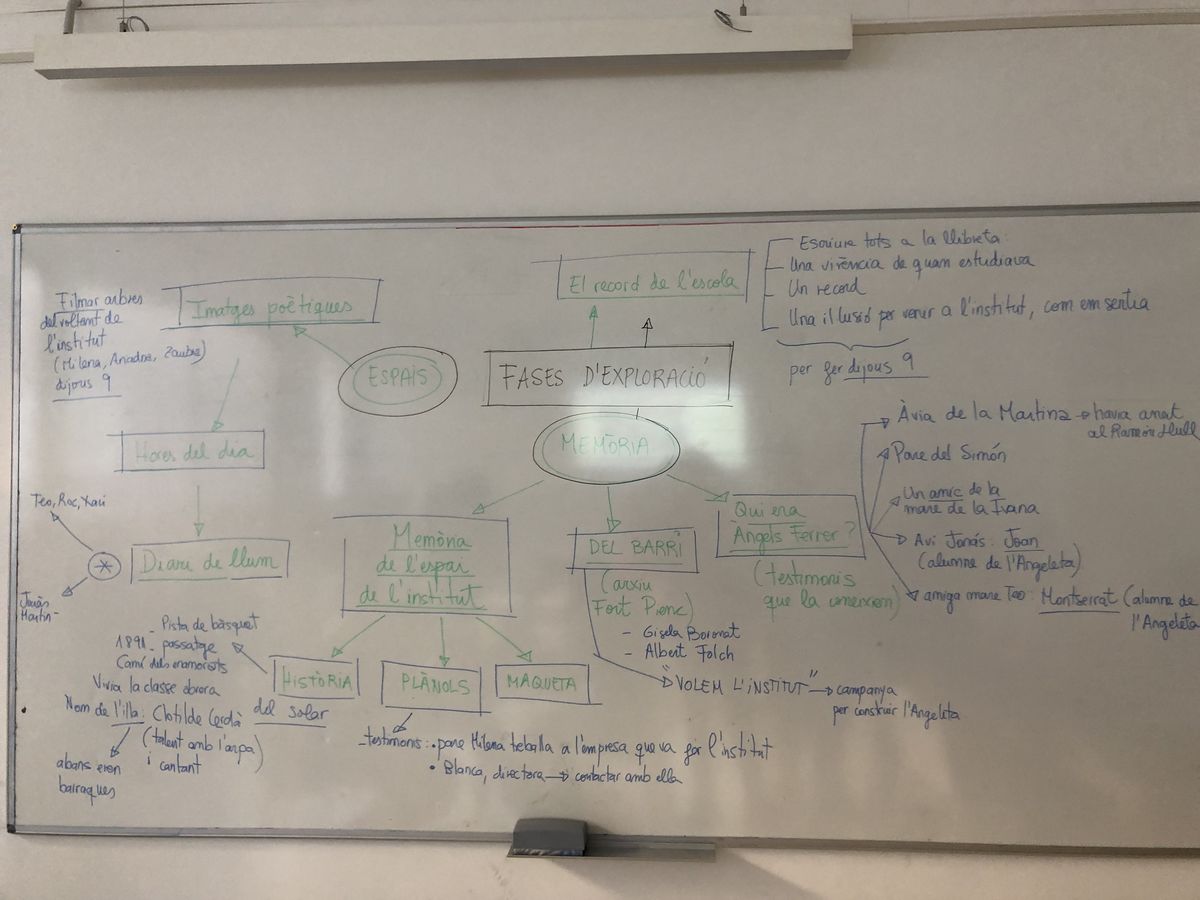 FASES D'EXPLORACIÓ
ESPAIS
Imatges poètiques
Filmar arbres
del voltant de
l'institut
(Milena, Ariadna,
dijous 9
Hores del dia
Diari de llum
Teo, Roc, Xavi
Martín
El record de l'escola
Escriure tots a la llibreta:
Una vivència de quan estudiava
Un record
Una il·lusió per venir a l'institut, com em sentia
per fer dijous 9
MEMÒRIA
Memòria
de l'espai
de l'institut
HISTÒRIA
del solar
Pista de bàsquet
1891 - passatge
Camí dels enamorats
Vivia la classe obrera
Nom de l'illa: Clotilde Cerdà
(talent amb l'arpa)
i cantant
abans eren
barraques
PLÀNOLS
testimonis: • pare Milena treballa a l'empresa que va fer l'institut
• Blanca, directora → contactar amb ella
MAQUETA
DEL BARRI
(arxiu
Fort Pienc)
- Gisela Boronat
- Albert Folch
"VOLEM L'INSTITUT" → campanya
per construir l'Angeleta
Qui era
Àngels Ferrer?
(testimonis
que la coneixien)
Àvia de la Martina → havia anat
al Ramon Llull
Pare del Simón
Un amic de la
mare de la Ivana
Avi Jonás: Joan
(alumne de l'Angeleta)
amiga mare Teo: Montserrat (alumne de
l'Angeleta